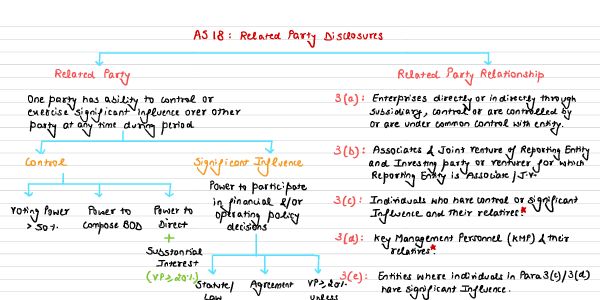 AS 18: Related Party Disclosures
Related Party
One party has ability to control or
exercise significant influence over other
party at any time during period
Control
Voting Power
> 50%
Power to
compose BOD
Power to
Direct
+
Substantial
Interest
(VP ≥ 20%)
Significant Influence
Power to participate
in financial &/or
operating policy
decisions
Statute/
Law
Agreement
VP ≥ 20%
unless
Related Party Relationship
3(a): Enterprises directly or indirectly through
subsidiary, control or are controlled by
or are under common control with entity.
3(b): Associates & Joint Venture of Reporting Entity
and Investing party or venturer for which
Reporting Entity is Associate / J.V.
3(c): Individuals who have control or significant
Influence and their relatives.*
3(d): Key Management Personnel (KMP) & their
relatives*
3(e): Entities where individuals in Para 3(c)/3(d)
have significant Influence.